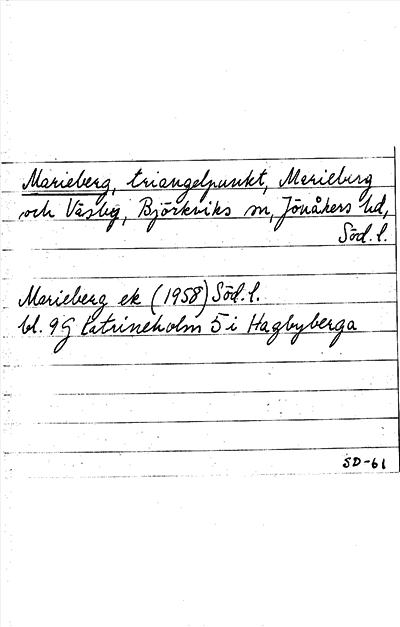 Marieberg, triangelpunkt, Marieberg
och Väsby, Björkviks sn, Jönåkers hd,
Söd. l.
Marieberg ek (1958) Söd. l.
bl. 9G Katrineholm 5 i Hagbyberga
SD-61